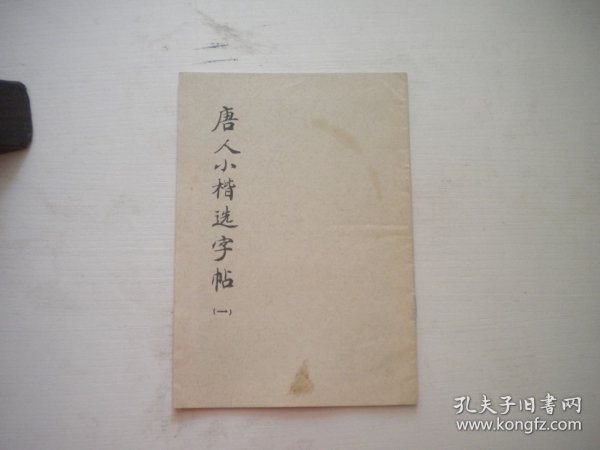 唐人小楷选字帖
(一)
孔夫子旧書网
www.kongfz.com